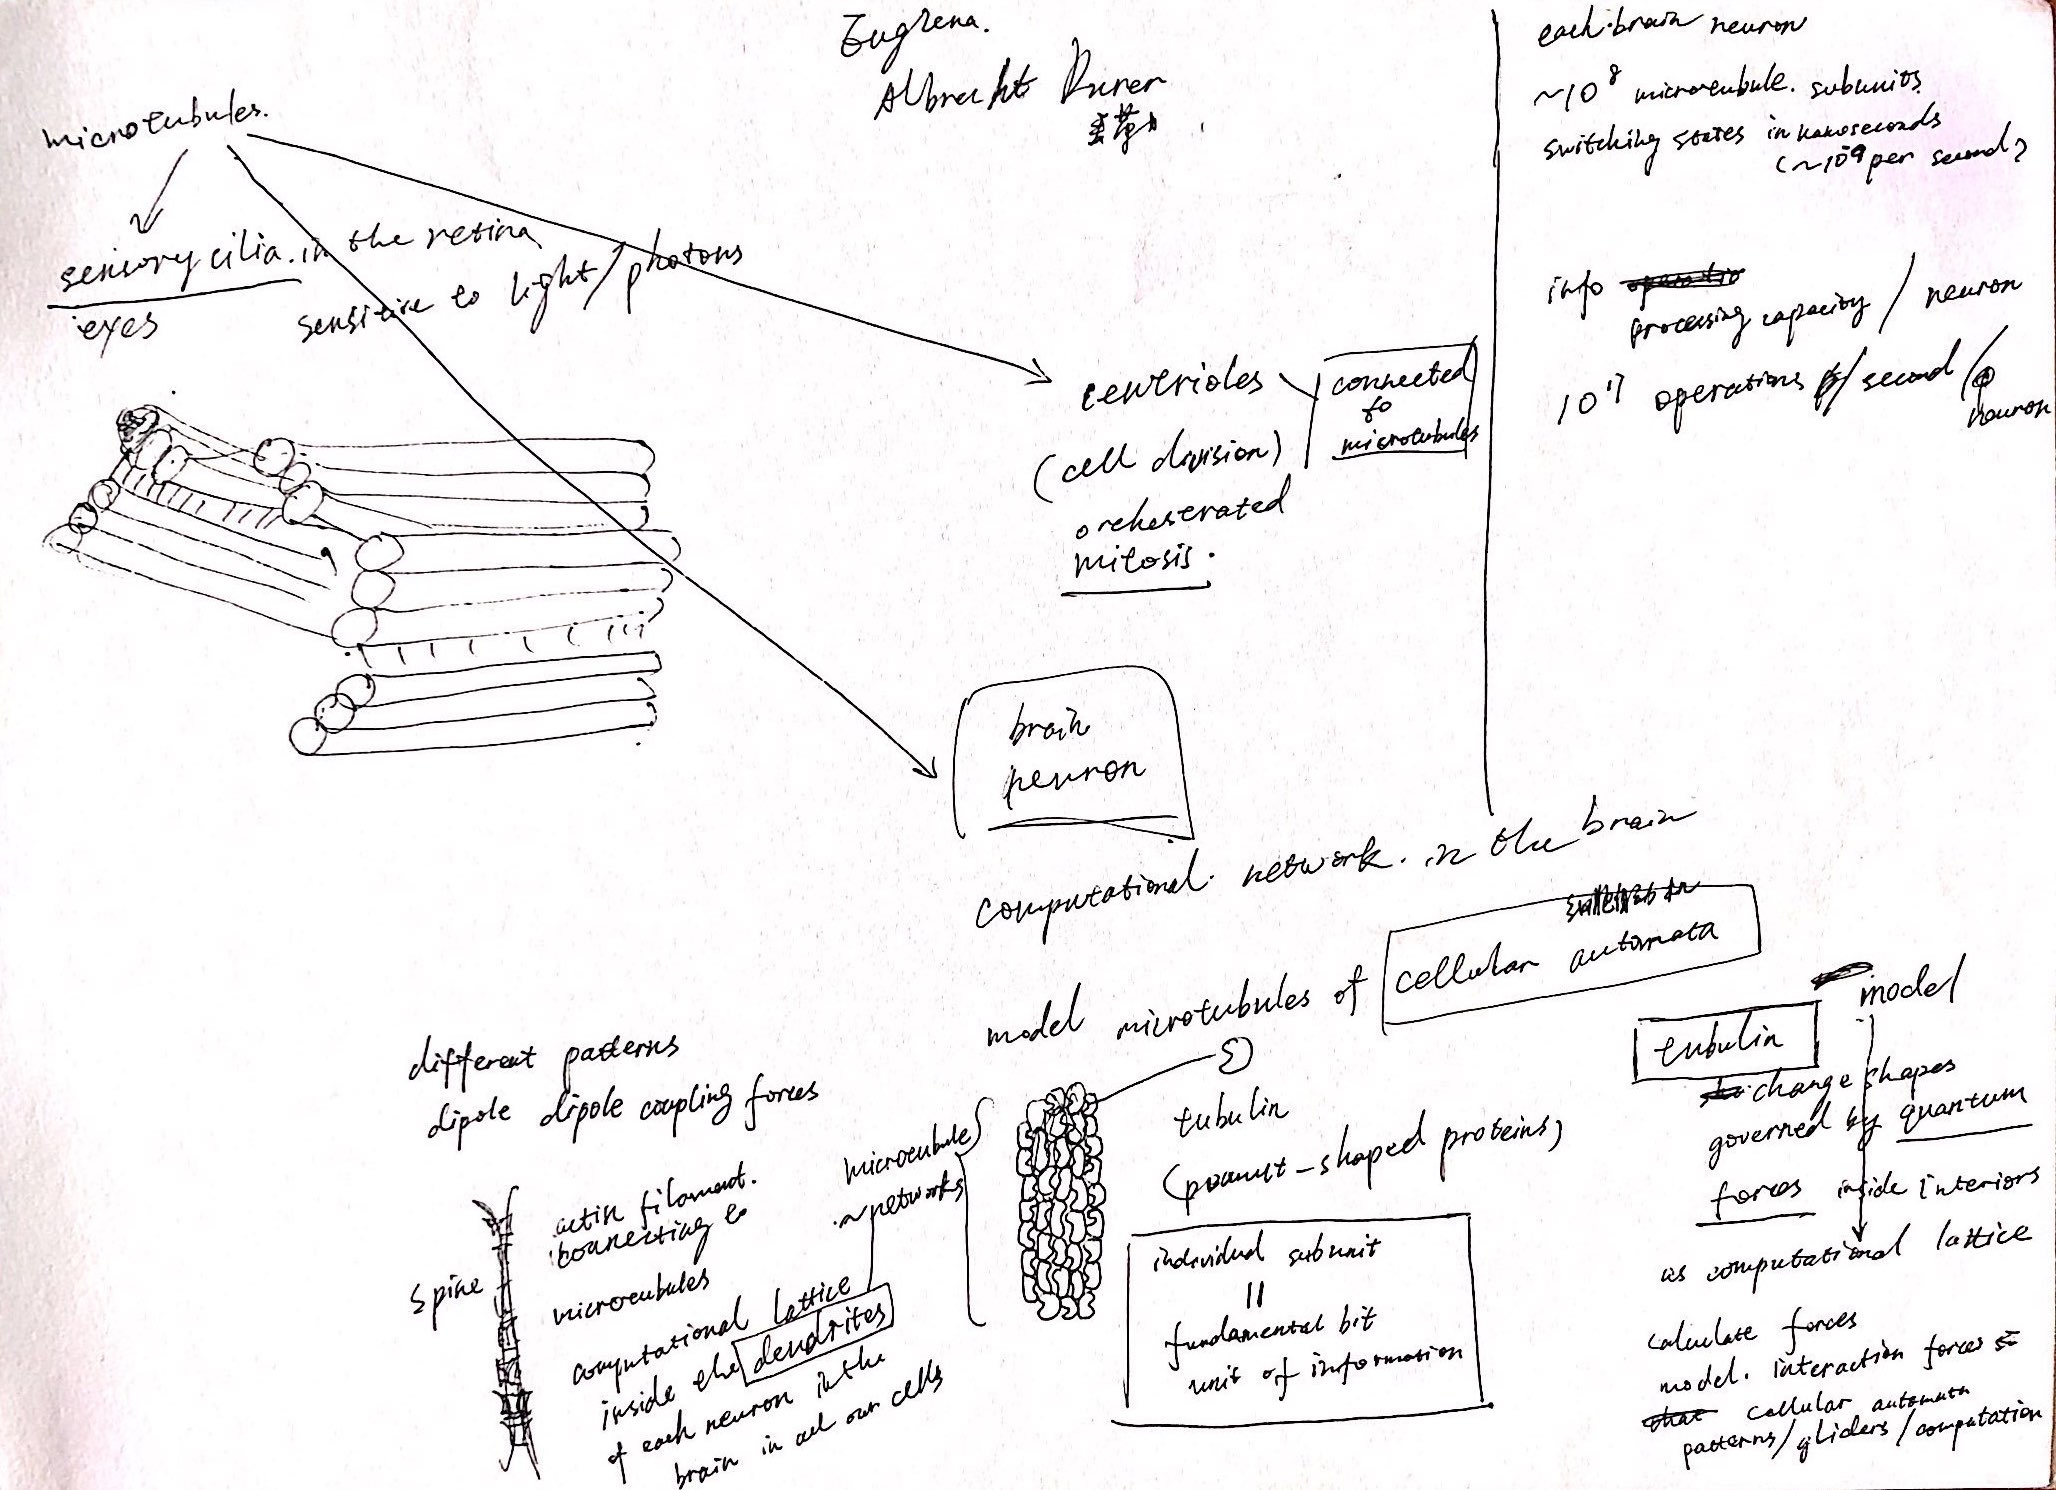 Euglena.
Albrecht Durer
microtubules.
sensory cilia. in the retina
eyes
sensitive to light/photons
centrioles
(cell division)
orchestrated
mitosis.
connected
to
microtubules
brain
neuron
computational network. in the brain
model microtubules of cellular automata
tubulin
(peanut-shaped proteins)
individual subunit
=
fundamental bit
unit of information
microtubule
networks
different patterns
dipole dipole coupling forces
spine
actin filament.
connecting to
microtubules
computational lattice
inside the dendrites
of each neuron in the
brain in all our cells
each brain neuron
~10^8 microtubule. subunits
switching states in nanoseconds
(~10^9 per second)
info
processing capacity / neuron
10^17 operations /second /
neuron
model
tubulin
change shapes
governed by quantum
forces inside interiors
as computational lattice
calculate forces
model. interaction forces
cellular automata
patterns/gliders/computation